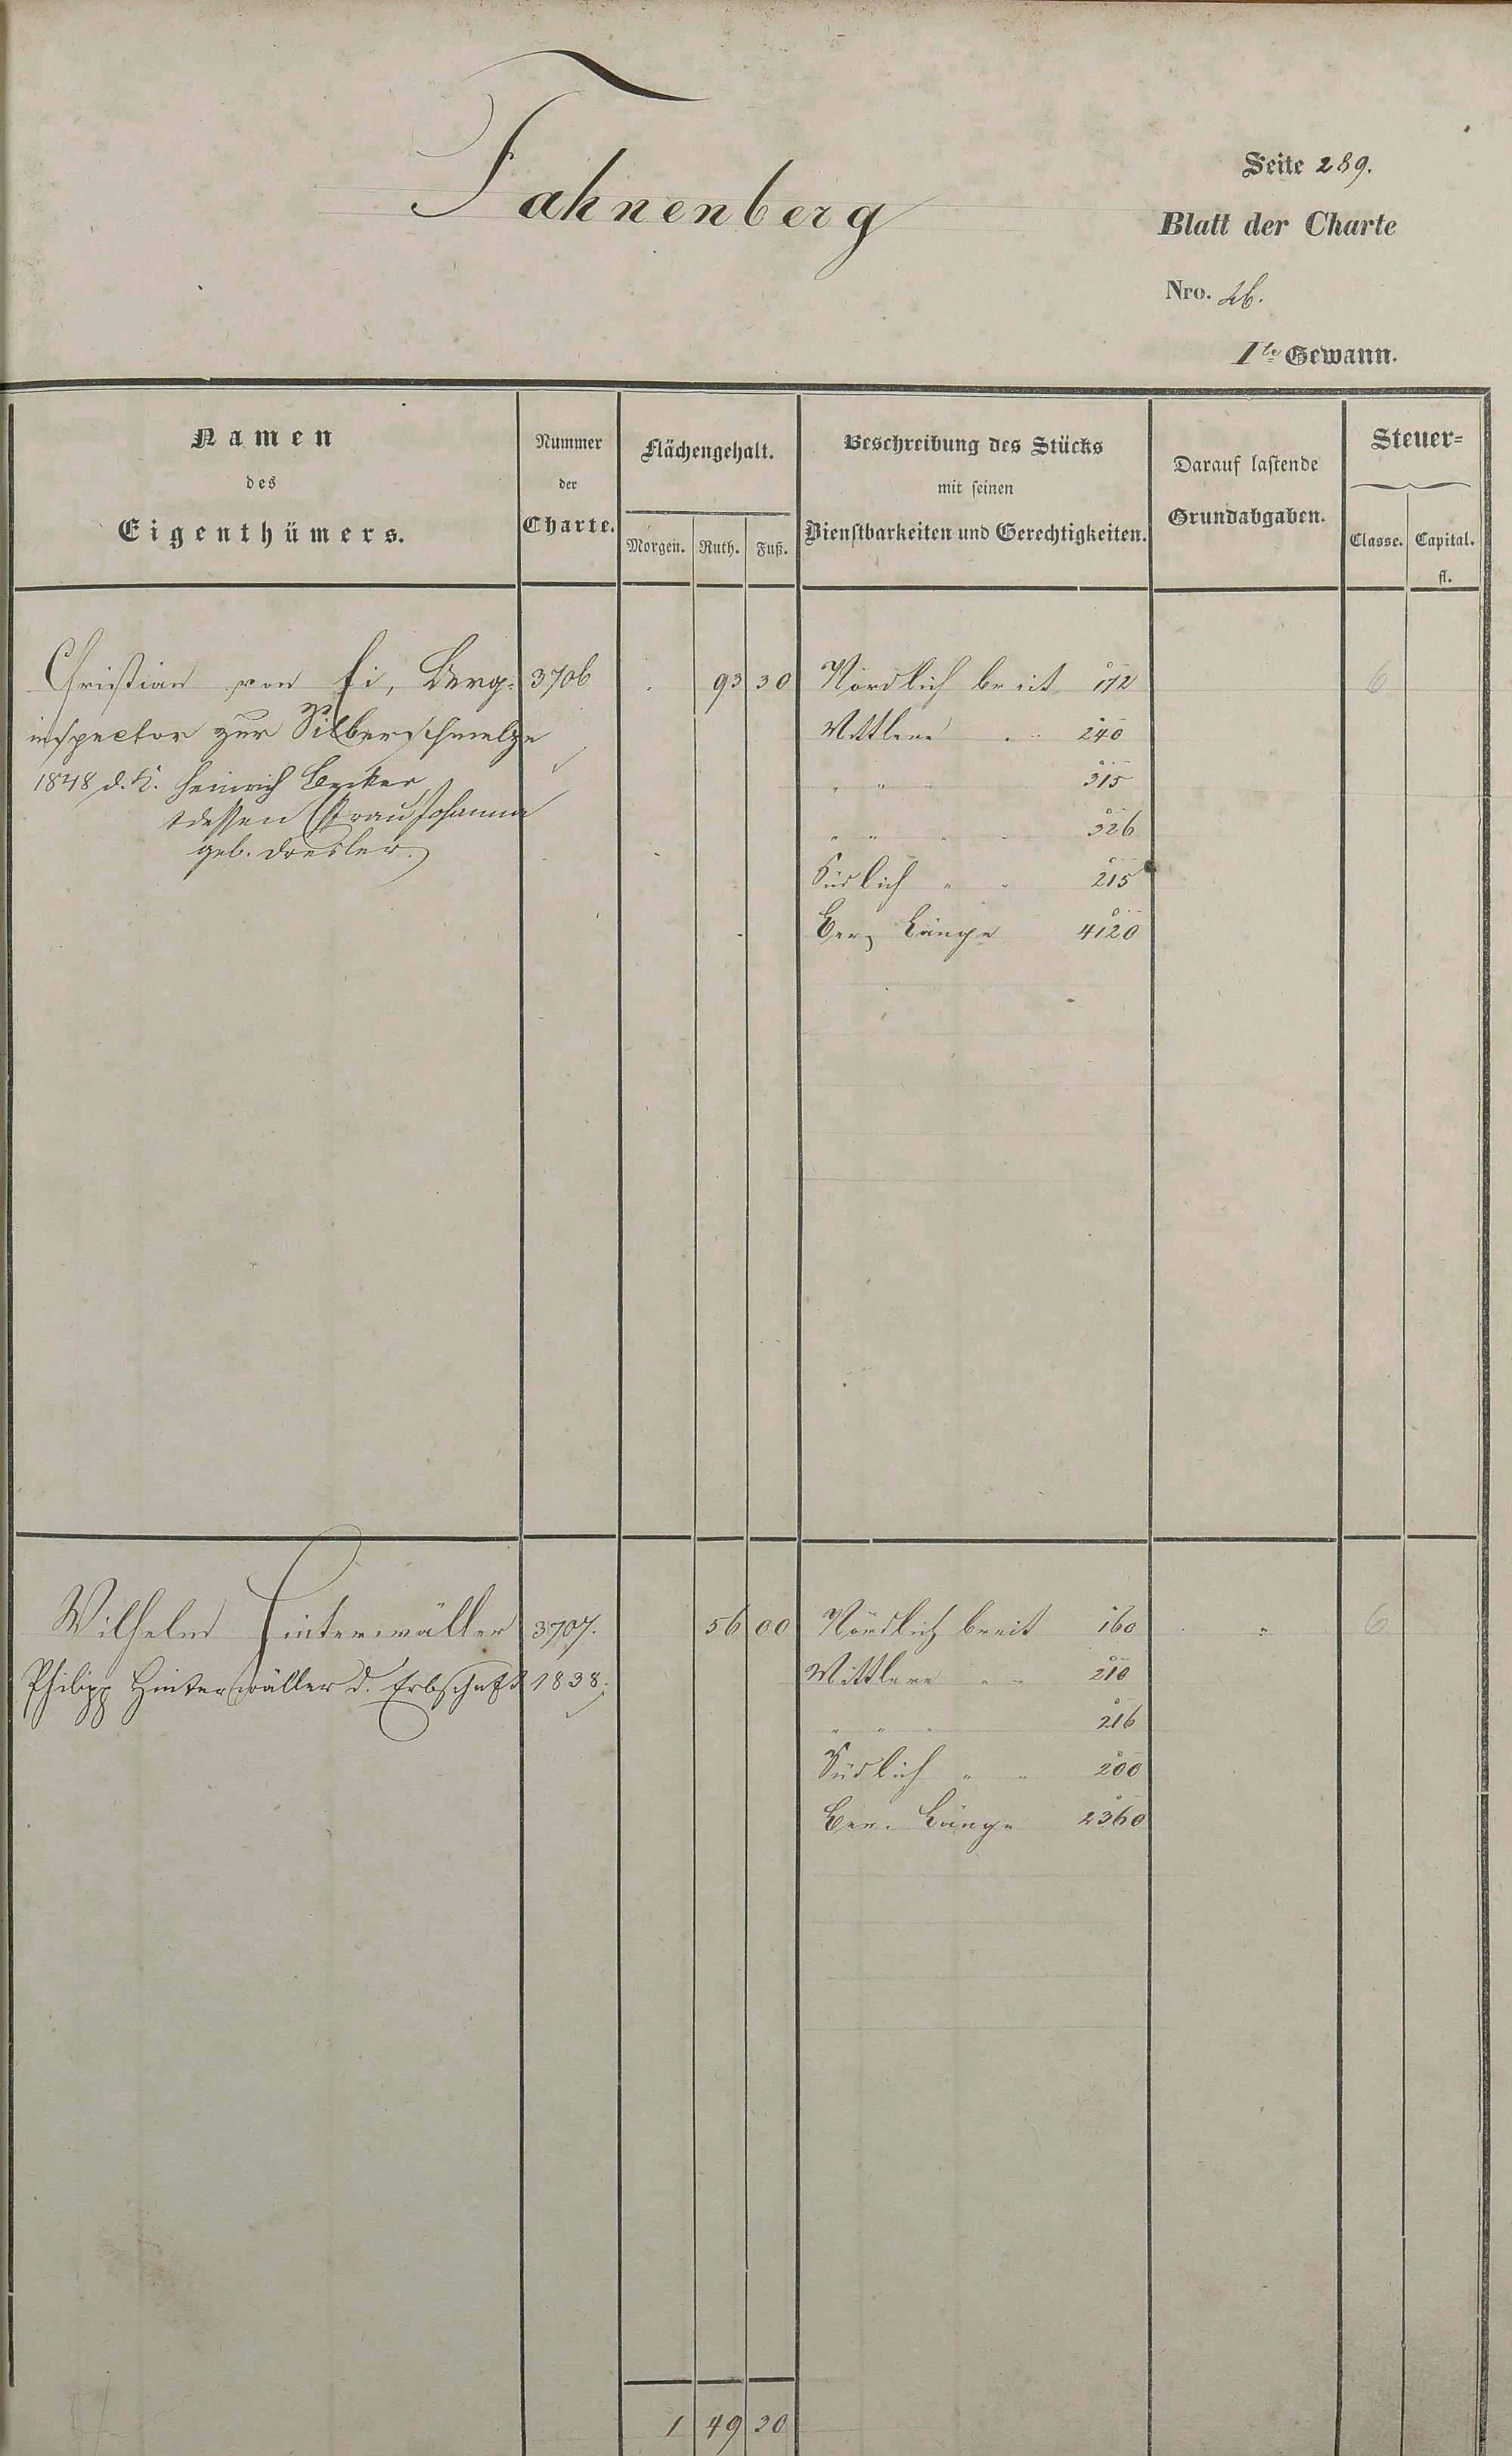 Fahnenberg
Seite 289.
Blatt der Charte
Nro. 26.
I te Gewann.
Namen des Eigenthümers.
Nummer der Charte.
Flächengehalt.
Morgen. Ruth. Fuß.
Beschreibung des Stücks mit seinen Dienstbarkeiten und Gerechtigkeiten.
Darauf lastende Grundabgaben.
Steuer=
Classe. Capital. fl.
Christian von Ei, Berg= 3706 93 30 Nördlich breit 172 6
inspector zur Silberschmelze Mittlere " " 240
1848 d. K. Heinrich Becker " " " 315
& dessen Frau Johanna " " " 326
geb. Dresler. Südlich " " 215
Ber. Länge 4120
Wilhelm Hinterwäller 3707. 56 00 Nördlich breit 160 " 6
Philipp Hinterwäller d. Erbschaft 1838. Mittlere " " 210
" " " 216
Südlich " " 200
Ber. Länge 2360
1 49 30